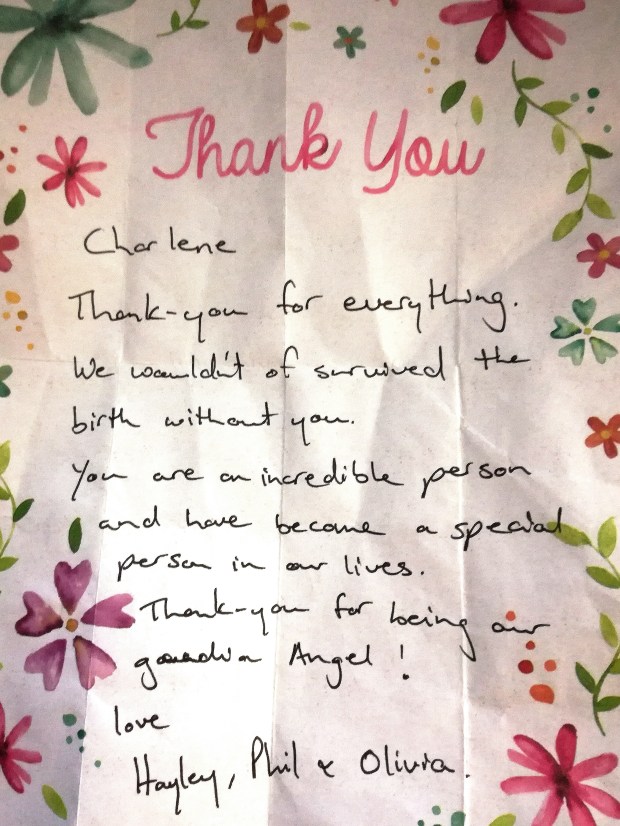 Thank You
Charlene
Thank-you for everything.
We wouldn't of survived the
birth without you.
You are an incredible person
and have become a special
person in our lives.
Thank-you for being our
guardian Angel !
love
Hayley, Phil & Olivia.